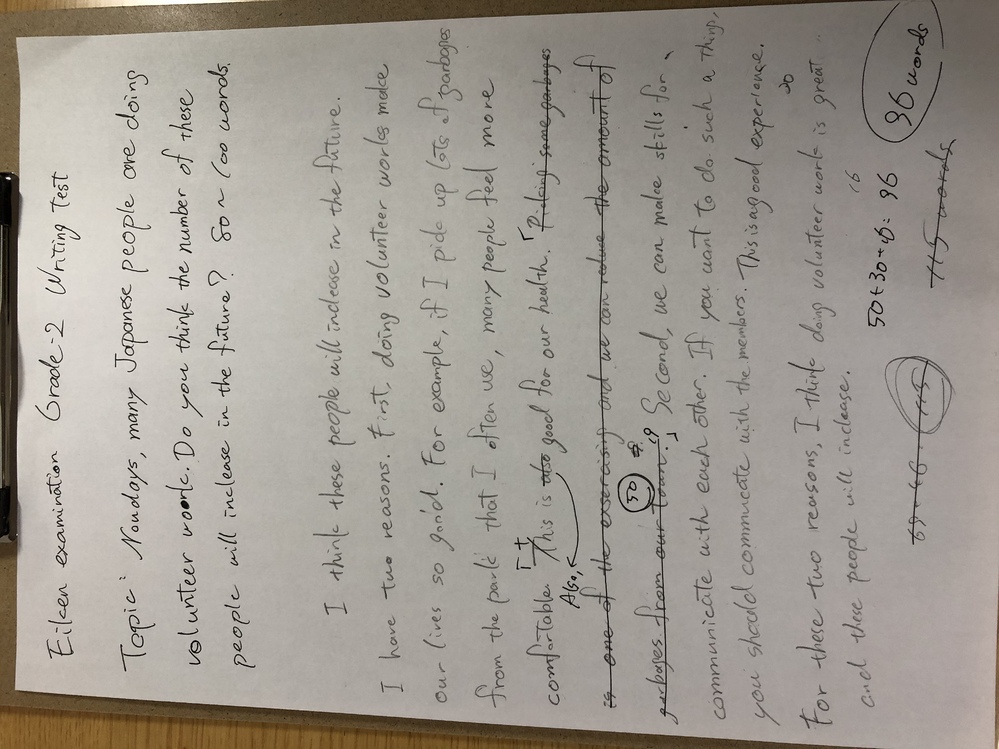 Eiken examination Grade-2 Writing Test
Topic: Nowdays, many Japanese people are doing
volunteer work. Do you think the number of these
people will increase in the future? 80~100 words.
I think these people will increase in the future.
I have two reasons. First, doing volunteer works make
our lives so good. For example, if I pick up lots of garbages
from the park that I often use, many people feel more
comfortable. Also, it is good for our health. Picking some garbages
is one of the exsercising and we can reduse the amount of
garbages from our town. 50 Second, we can make skills for
communicate with each other. If you want to do such a thing,
you should commucate with the members. This is a good experience.
30
For these two reasons, I think doing volunteer work is great
and these people will increase. 16
50+30+16=96
96 words
115 words